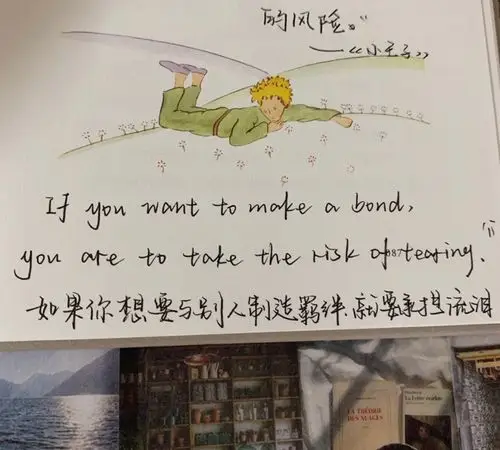 的风险。”
——《小王子》
If you want to make a bond,
you are to take the risk of tearing.”
如果你想要与别人制造羁绊,就要承担流泪
LA THÉORIE
DES NUAGES